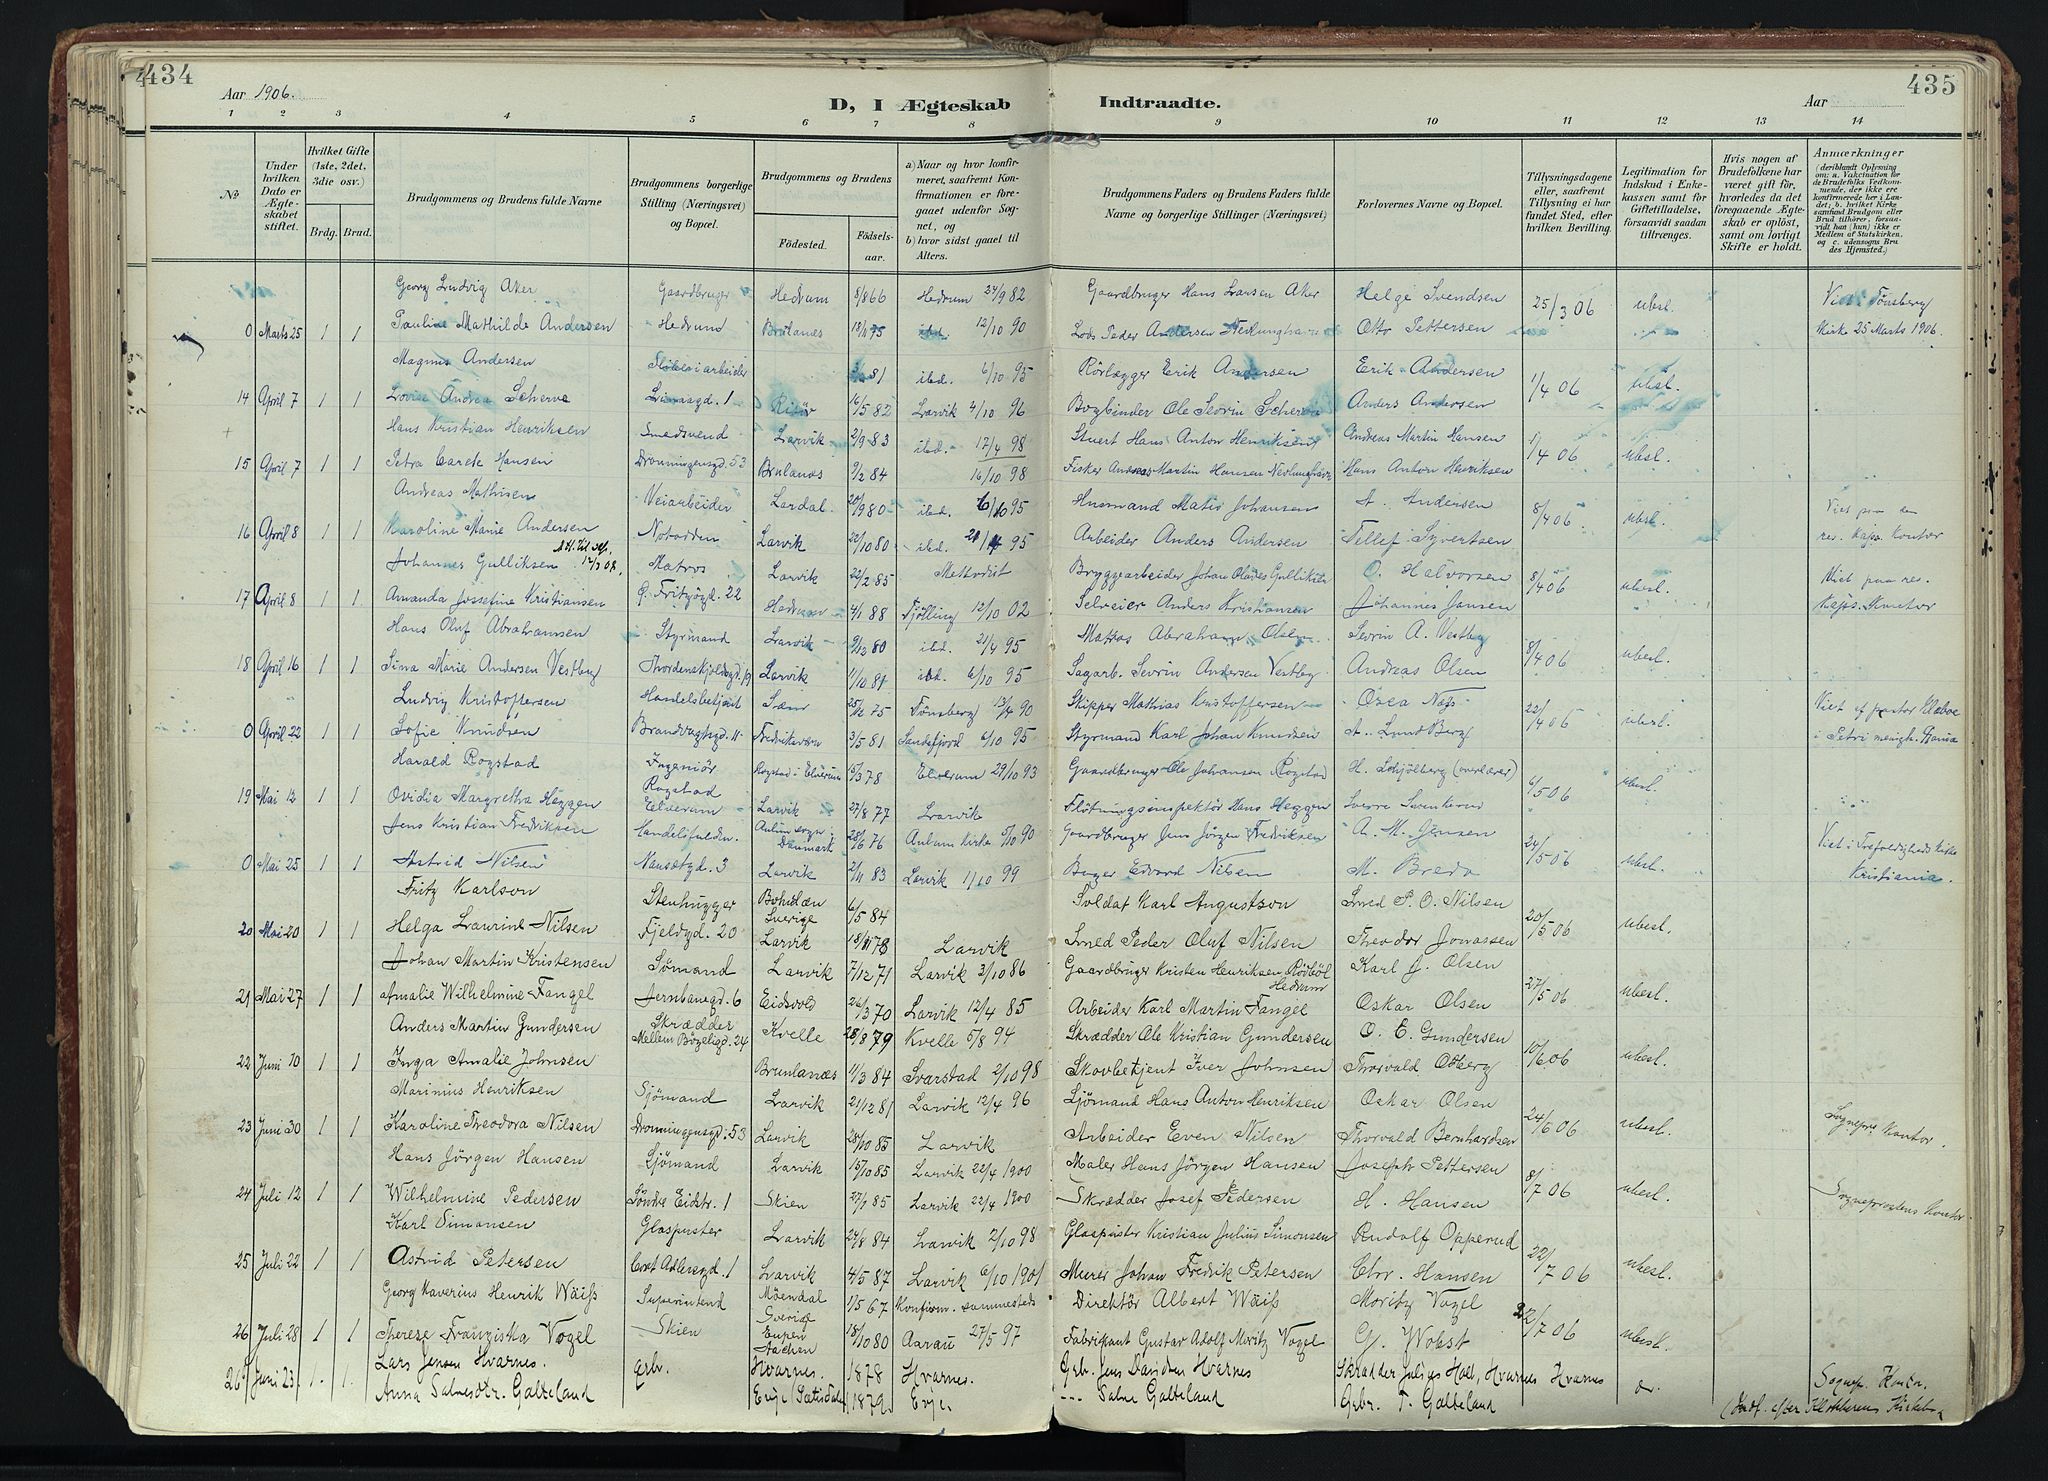 434
435
Aar 1906.
D, I Ægteskab Indtraadte.
Aar
1 2 3 4 5 6 7 8 9 10 11 12 13 14
No
Under hvilken Dato er Ægteskabet stiftet.
Hvilket Gifte (1ste, 2det, 3die osv.)
Brdg. Brud.
Brudgommens og Brudens fulde Navne
Brudgommens borgerlige Stilling (Næringsvei) og Bopæl.
Brudgommens og Brudens
Fødested.
Fødselsaar.
a) Naar og hvor konfirmeret, saafremt Konfirmationen er foregaaet udenfor Sognet, og
b) hvor sidst gaaet til Alters.
Brudgommens Faders og Brudens Faders fulde Navne og borgerlige Stillinger (Næringsvei)
Forlovernes Navne og Bopæl.
Tillysningsdagene eller, saafremt Tillysning ei har fundet Sted, efter hvilken Bevilling.
Legitimation for Indskud i Enkekassen samt for Giftetilladelse, forsaavidt saadan tiltrænges.
Hvis nogen af Brudefolkene har været gift før, hvorledes da det foregaaende Ægteskab er opløst, samt om lovligt Skifte er holdt.
Anmærkninger (deriblandt Oplysning om: a. Vakcination for de Brudefolks Vedkommende, der ikke ere konfirmerede her i Landet; b. hvilket Kirkesamfund Brudgom eller Brud tilhører, forsaavidt han (hun) ikke er Medlem af Statskirken, og c. udensogns Brudes Hjemsted.)
Georg Ludvig Aker Gaardbruger Hedrum 5/8 66 Hedrum 24/9 82 Gaardbruger Hans Larsen Aker Helge Svendsen 25/3 06 ubesl. Viet i Tønsberg
0 Marts 25 1 1 Pauline Mathilde Andersen Hedrum Brulanes 18/11 75 ibd. 12/10 90 Lods Peder Andersen Otto Pettersen Kirke 25 Marts 1906.
Magnus Andersen 81 ibd. 6/10 95 Rörlægger Erik Andersen Erik Andersen
14 April 7 1 1 Lovise Andrea Scherve Risör 16/5 82 Larvik 4/10 96 Bogbinder Ole Severin Scherve Anders Andersen 1/4 06 ubesl.
Hans Kristian Henriksen Smedsvend Larvik 2/9 83 ibd. 17/4 98 Stuert Hans Anton Henriksen Andreas Martin Hansen
15 April 7 1 1 Petra Carete Hansen Dronningensgd. 53 Brulanes 9/2 84 16/10 98 Fisker Andreas Martin Hansen Nevlunghavn Hans Anton Henriksen 1/4 06 ubesl.
Andreas Mathisen Veiarbeider Lardal 20/9 80 ibd. 6/10 95 Husmand Matis Johansen A. Andersen 8/4 06 ubesl. Viet paa en
16 April 8 1 1 Karoline Marie Andersen Notodden Larvik 22/10 80 ibd. 95 Arbeider Anders Andersen Tellef Syvertsen res. Kaps. Kontor
Johannes Gulliksen Matros Larvik 22/2 85 Methodist Bryggearbeider Johan Gulliksen O. Halvorsen 8/4 06 ubesl. Viet paa res.
17 April 8 1 1 Amanda Josefine Kristiansen G. Fritzögd. 22 Hedrum 4/1 88 Tjölling 12/10 02 Selveier Anders Kristiansen Johannes Jansen Kaps. Kontor
Hans Oluf Abrahamsen Styrmand Larvik 9/12 80 ibd. 21/4 95 Matros Abraham Olsen Sevrin A. Vestby
18 April 16 1 1 Sina Marie Andersen Vestby Thordenskjoldsgd. 19 Larvik 11/10 81 ibd. 6/10 95 Sagarb. Sevrin Andersen Vestby Andreas Olsen 8/4 06 ubesl.
Ludvig Kristoffersen Handelsbetjent Sæm 25/12 75 Tönsberg 13/4 90 Skipper Mathias Kristoffersen Osea Næss 22/4 06 ubesl. Viet af pastor Klaboe
0 April 22 1 1 Sofie Knudsen Brandvagtsgd. 11 Fredriksværn 3/5 81 Sandefjord 6/10 95 Styrmand Karl Johan Knudsen A. Lund Berg i Petri menigh.
Harald Rogstad Ingeniör Rogstad i Elverum 15/3 78 Elverum 29/10 93 Gaardbruger Ole Johansen Rogstad H. Schjölberg (overlærer)
19 Mai 12 1 1 Ovidia Margretha Heggen Rogstad Elverum Larvik 27/8 77 Larvik Flötningsinspektör Hans Heggen 6/5 06 ubesl.
Jens Kristian Fredriksen Handelsfuldm. Aulum sogn i Danmark 28/6 76 Aulum Kirke 5/10 90 Gaardbruger Jens Jörgen Fredriksen A. M. Jensen 24/5 06 ubesl. Viet i Trefoldigheds Kirke
0 Mai 25 1 1 Astrid Nilsen Nansetgd. 3 Larvik 2/11 83 Larvik 1/10 99 Edvard Nilsen M. Bredo Kristiania.
Fritz Karlson Stenhugger Bohulæn Sverige 6/5 84 Soldat Karl Augustson Smed P. O. Nilsen
20 Mai 20 1 1 Helga Laurine Nilsen Fjeldgd. 20 Larvik 18/11 78 Larvik Smed Peder Oluf Nilsen Theodor Jonassen 20/5 06 ubesl.
Johan Martin Kristensen Sømand Larvik 7/12 71 Larvik 3/10 86 Gaardbruger Kristen Henriksen Rödböl Hedrum Karl J. Olsen
21 Mai 27 1 1 Amalie Wilhelmine Fangel Jernbanegd. 6 Eidsvold 26/3 70 Larvik 12/4 85 Arbeider Karl Martin Fangel Oskar Olsen 27/5 06 ubesl.
Anders Martin Gundersen Skrædder Kvelle 28/8 79 Kvelle 5/8 94 Skrædder Ole Kristian Gundersen O. E. Gundersen
22 Juni 10 1 1 Inga Amalie Johnsen Mellem Bögeligd. 24 Brunlanæs 11/3 84 Svarstad 2/10 98 Skovbetjent Iver Johnsen Thorvald Otberg 10/6 06 ubesl.
Marinius Henriksen Sjömand Larvik 21/12 81 Larvik 12/4 96 Sjömand Hans Anton Henriksen Oskar Olsen
23 Juni 30 1 1 Karoline Theodora Nilsen Dronningensgd. 53 Larvik 28/10 85 Larvik Arbeider Even Nilsen Thorvald Bernhardsen 24/6 06 ubesl. Sognepr. Kontor.
Hans Jörgen Hansen Sjömand Larvik 15/10 85 Larvik 22/4 1900 Maler Hans Jörgen Hansen Joseph Pettersen
24 Juli 12 1 1 Wilhelmine Pedersen Söndre Eidstr. 1 Skien 27/1 85 Larvik 22/4 1900 Skrædder Josef Pedersen H. Hansen 8/7 06 ubesl. Sogneprestens Kontor.
Karl Simonsen Glaspuster Larvik 24/8 84 Larvik 2/10 98 Glaspuster Kristian Julius Simonsen Rudolf Opperud
25 Juli 22 1 1 Astrid Petersen Cort Adlersgd. 1 Larvik 4/5 87 Larvik 6/10 1901 Murer Johan Fredrik Petersen Chr. Hansen 22/7 06 ubesl.
Georg Xaverius Henrik Wäiss Superintend Möendal Sverige 1/5 67 Konfirm. sammesteds Direktör Albert Wäiss Moritz Vogel
26 Juli 28 1 1 Therese Franziska Vogel Skien Eupen Aachen 15/10 80 Aarau 27/5 97 Fabrikant Gustav Adolf Moritz Vogel G. Wobst 22/7 06 ubesl.
26 Juni 23. 1. 1. Lars Jensen Hvarnes. Arb. Hvarnes. 1878 Hvarnes. Gbr. Jens Davidsen Hvarnes Skrædder Julius Holt, Hvarnes Hvarnes Sognep. Kontor.
Anna Salvesdtr. Galteland Evje (Sætisdalen) 1879. Evje. --- Salve Galteland Gbr. T. Galteland (Indf. efter Klokkerens Kirkeb.